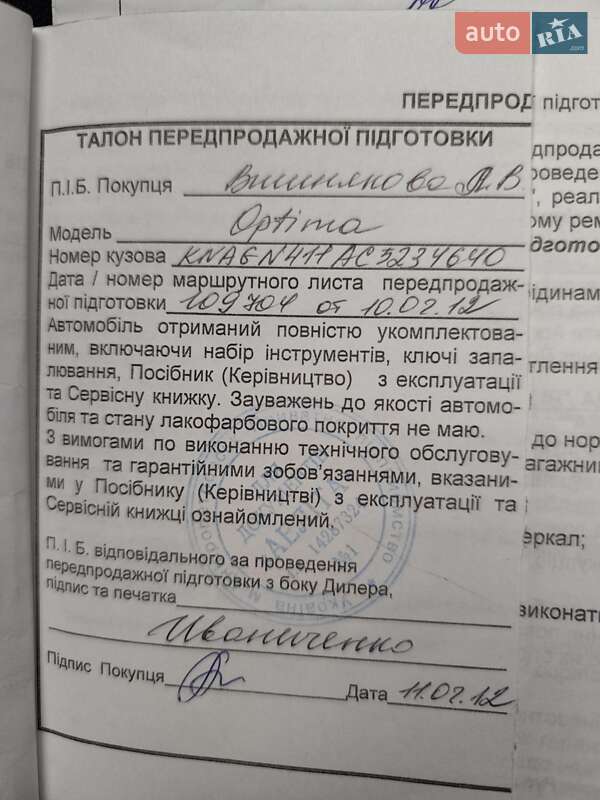 auto RIA.com
ПЕРЕДПРОД підгот
ТАЛОН ПЕРЕДПРОДАЖНОЇ ПІДГОТОВКИ
П.І.Б. Покупця Вишнякова Л.В.
Модель Optima
Номер кузова KNAGN411AC5234640
Дата / номер маршрутного листа передпродаж-
ної підготовки 109704 от 10.02.12
Автомобіль отриманий повністю укомплектова-
ним, включаючи набір інструментів, ключі запа-
лювання, Посібник (Керівництво) з експлуатації
та Сервісну книжку. Зауважень до якості автомо-
біля та стану лакофарбового покриття не маю.
З вимогами по виконанню технічного обслугову-
вання та гарантійними зобов'язаннями, вказани-
ми у Посібнику (Керівництві) з експлуатації та
Сервісній книжці ознайомлений.
П. І. Б. відповідального за проведення
передпродажної підготовки з боку Дилера,
підпис та печатка
Иваниченко
Підпис Покупця
Дата 11.02.12
дпрода
реал
ому рем
дгото
ідинам
тлення
до нор
агажни
еркал;
виконат